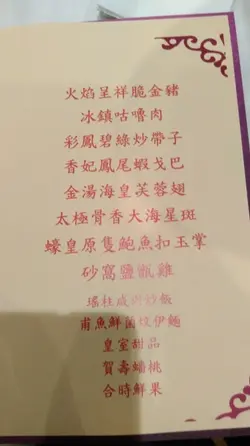 火焰呈祥脆金豬
冰鎮咕嚕肉
彩鳳碧綠炒帶子
香妃鳳尾蝦戈巴
金湯海皇芙蓉翅
太極骨香大海星斑
蠔皇原隻鮑魚扣玉掌
砂窩鹽焗雞
瑤柱咸炒飯
甫魚鮮菌炆伊麵
皇室甜品
賀壽蟠桃
合時鮮果